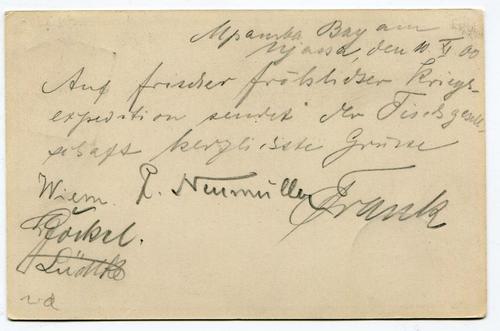 Mpamba Bay am
Njassa, den 10. XI 00
Auf frischer fröhlicher Kriegs-
expedition sendet der Tischgesell-
schaft herzlichste Grüsse
Wiem. P. Neumüller Frank
Röckel.
Lüdtke